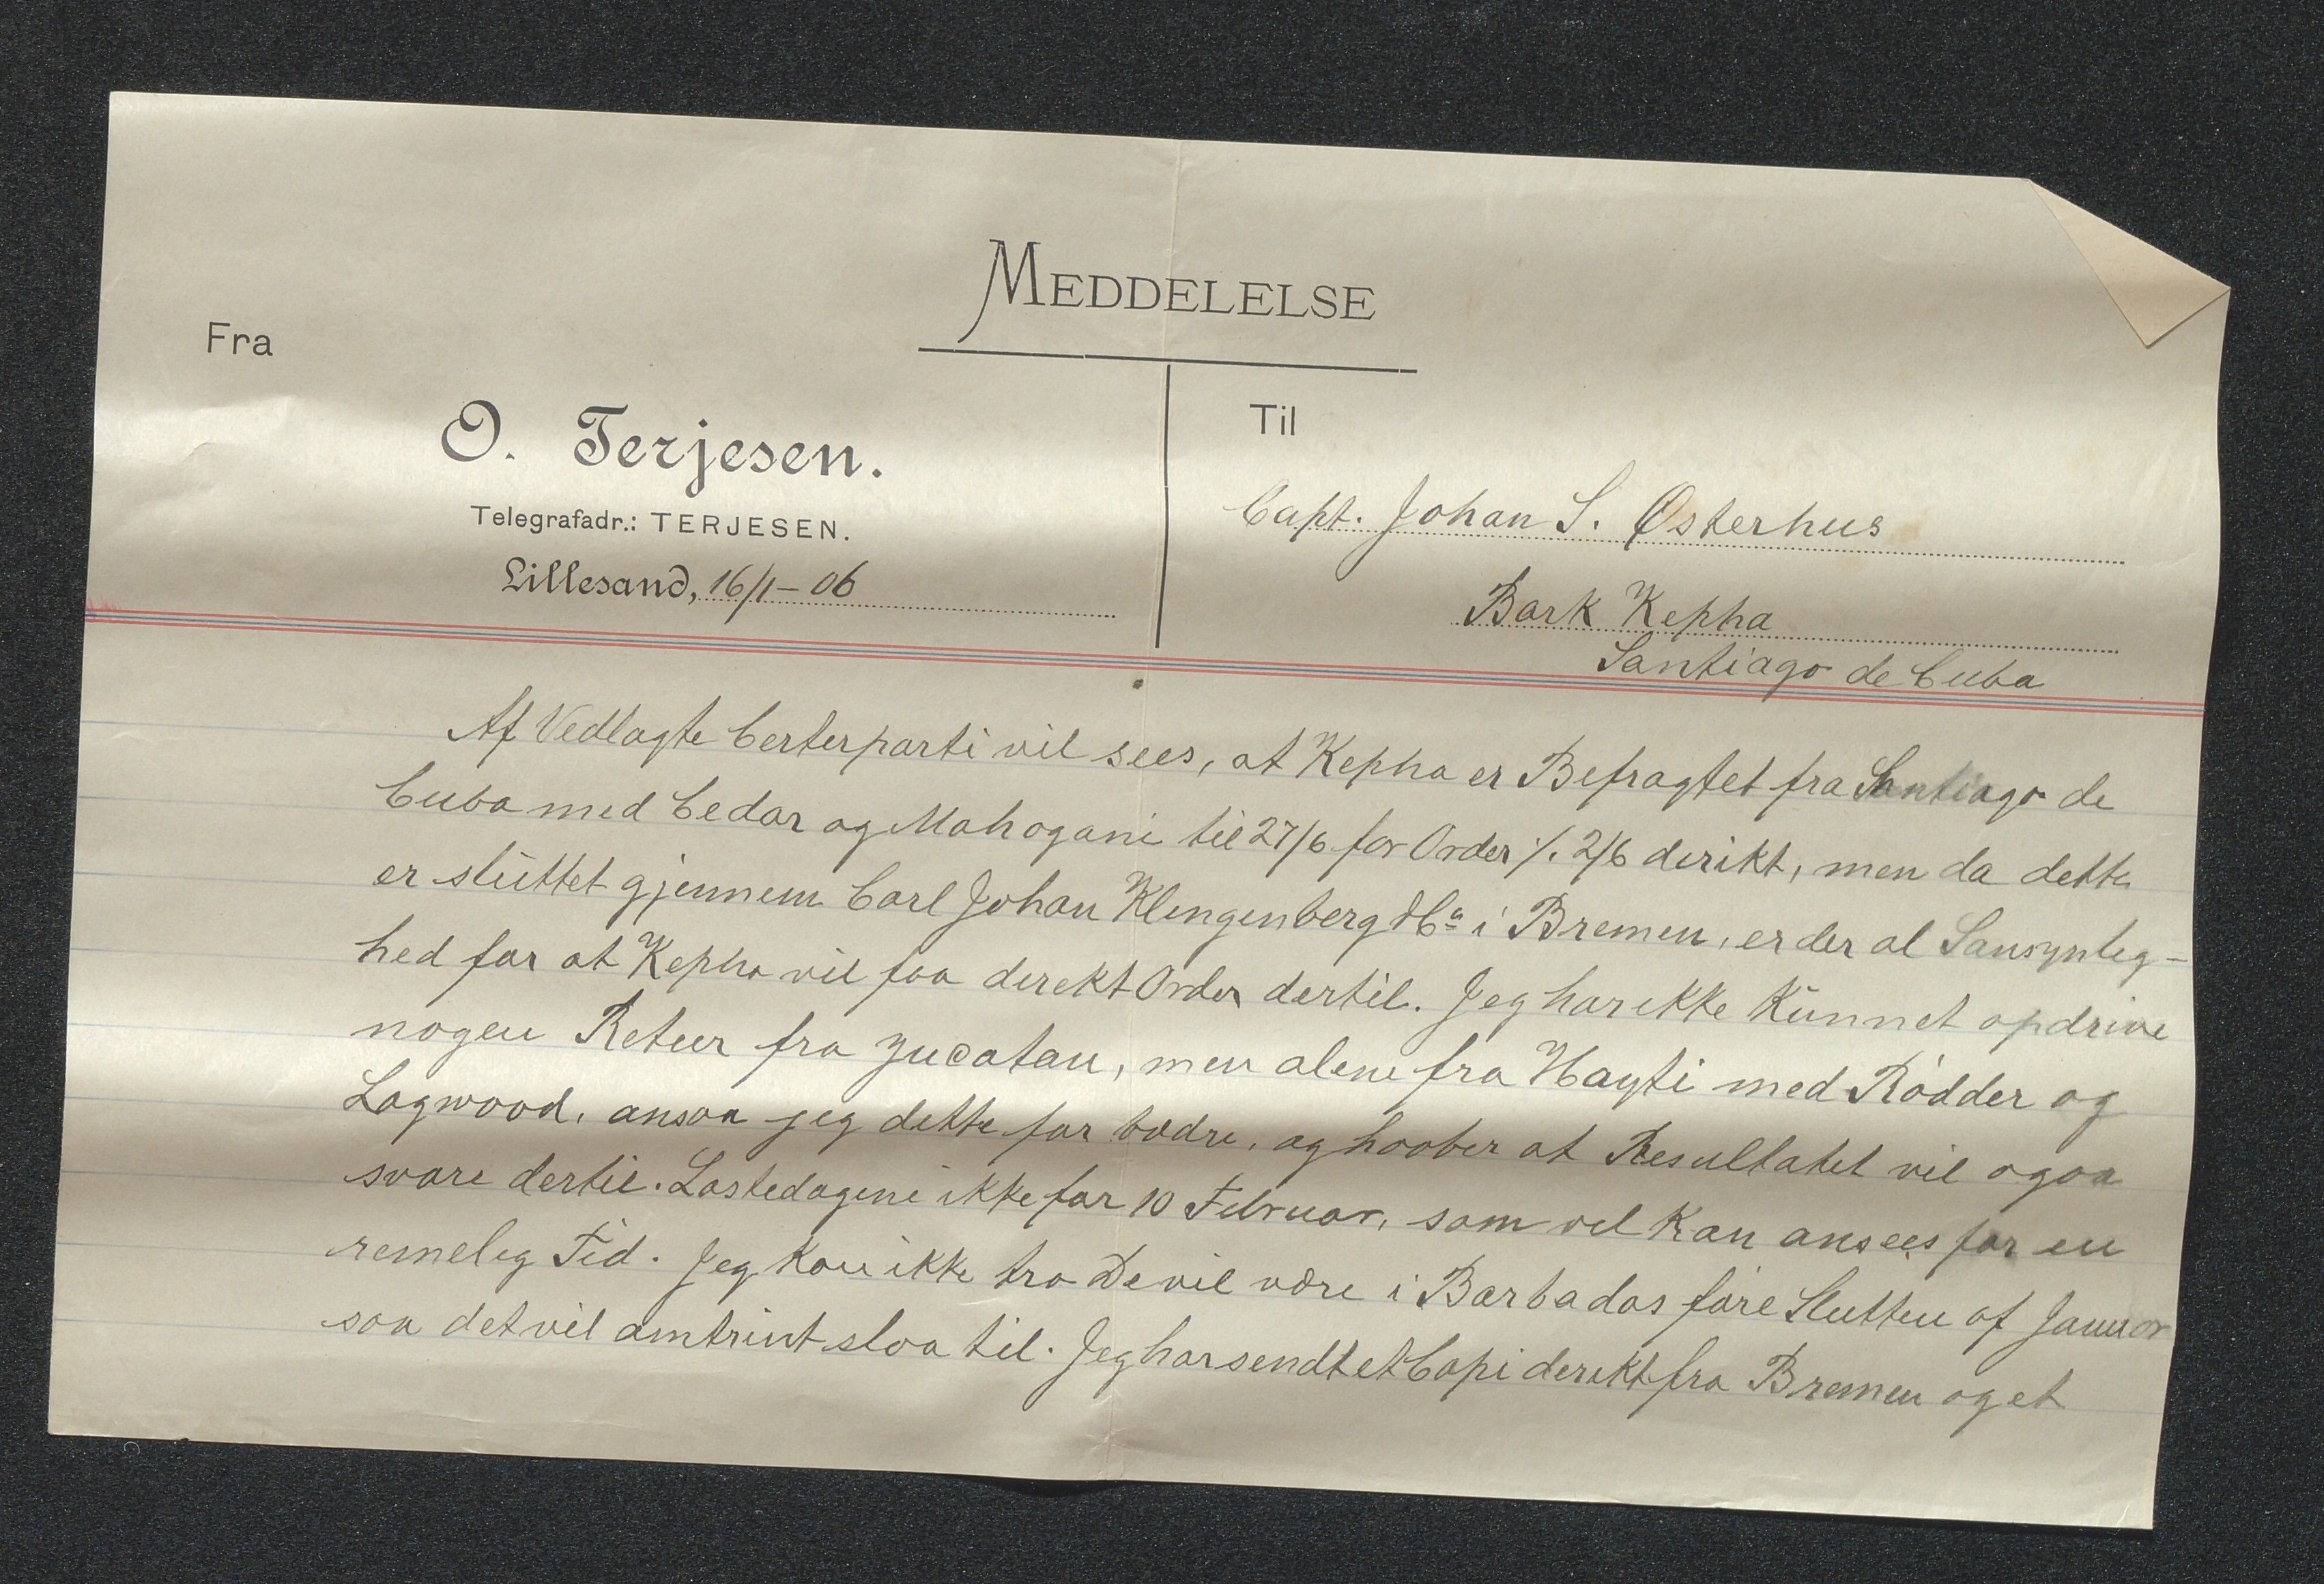 MEDDELELSE
Fra
O. Terjesen.
Telegrafadr.: TERJESEN.
Lillesand, 16/1-06
Til
Capt. Johan S. Østerhus
Bark Kepha
Santiago de Cuba
Af Vedlagte Certerparti vil sees, at Kepha er Befragtet fra Santiago de
Cuba med Cedar og Mahogani til 27/6 for Order ./. 2/6 derikt, men da dette
er sluttet gjennem Carl Johan Klingenberg & Co i Bremen, er der al Sansynlig-
hed for at Kepha vil faa direkt Order dertil. Jeg har ikke kunnet opdrive
nogen Retur fra Yucatan, men alene fra Hayti med Rödder og
Logwood, ansaa jeg dette for bedre, og haaber at Resultatet vil ogsaa
svare dertil. Lastedagene ikke før 10 Februar, som vel kan ansees for en
remelig Tid. Jeg kan ikke tro De vil være i Barbados före Slutten af Januar
saa det vil omtrint slaa til. Jeg har sendt et Copi derikt fra Bremen og et